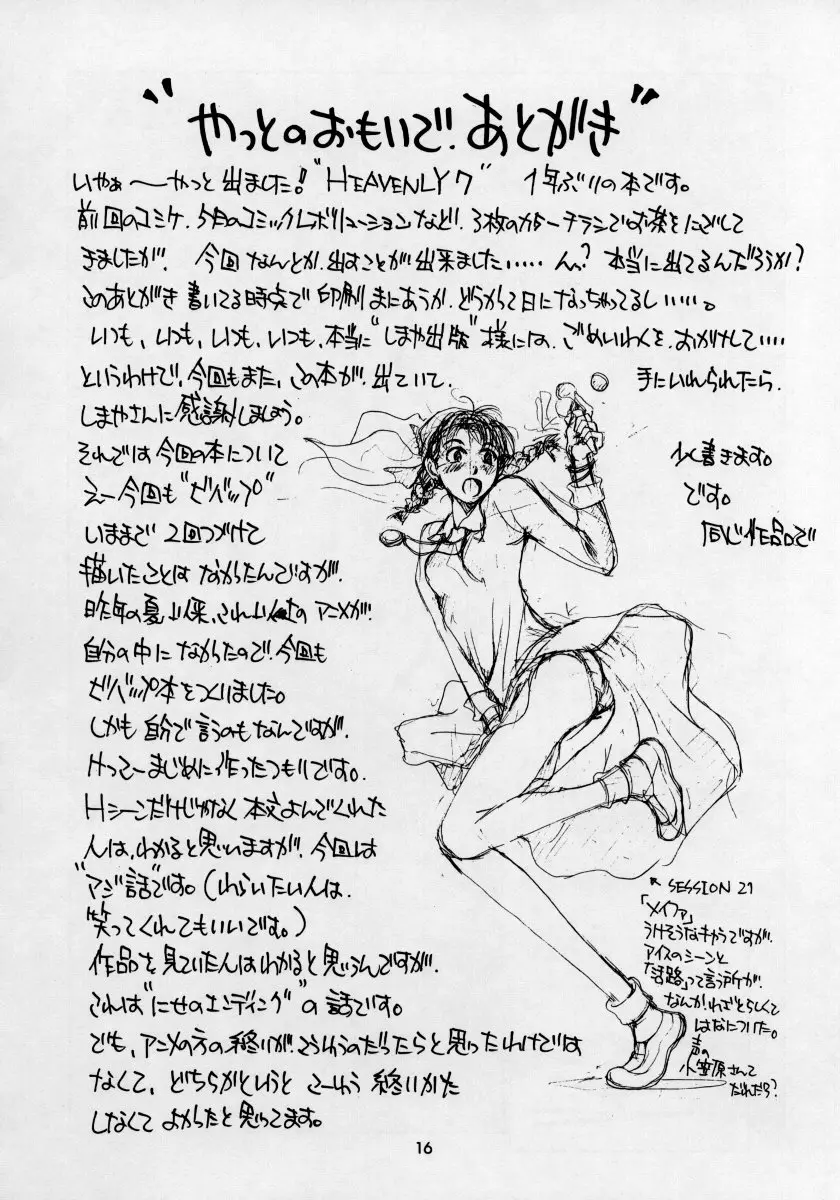 "やっとのおもいで!あとがき"
いやぁ〜やっと出ました!"HEAVENLY7" 1年ぶりの本です。
前回のコミケ、5月のコミックレボリューションなど、3枚のカラーチラシでお茶をにごして
きましたが、今回なんとか出すことが出来ました……ん?本当に出てるんだろうか?
このあとがき書いてる時点で印刷まにあうか、どうかって日になっちゃってるし……。
いつも、いつも、いつも、いつも、本当に"しまや出版"様には、ごめいわくを、おかけして……
というわけで、今回もまた、この本が、出ていて、手にいれられたら、
しまやさんに感謝しましょう。
それでは今回の本について少く書きます。
えー今回も"ビバップ"です。
いままで2回つづけて同じ作品で
描いたことはなかったんですが、
昨年の夏以来、これ以上のアニメが、
自分の中になかったので、今回も
ビバップ本をつくりました。
しかも自分で言うのもなんですが、
けっこーまじめに作ったつもりです。
Hシーンだけじゃなく本文よんでくれた
人は、わかると思いますが、今回は
"マジ話"です。(わらいたい人は、
笑ってくれてもいいです。)
作品を見ていた人はわかると思うんですが、
これは"にせのエンディング"の話です。
でも、アニメの方の終りが、こういうのだったらと思ったわけでは
なくて、どちらかというと こーゆう終りかた
しなくてよかったと思ってます。
↖SESSION 21
「メイファ」
うけそうなキャラですが、
アイスのシーンと
「活路」って言う所が、
なんかわざとらしくて
はなについた。
声の
小笠原さんて
だれだろ?
16